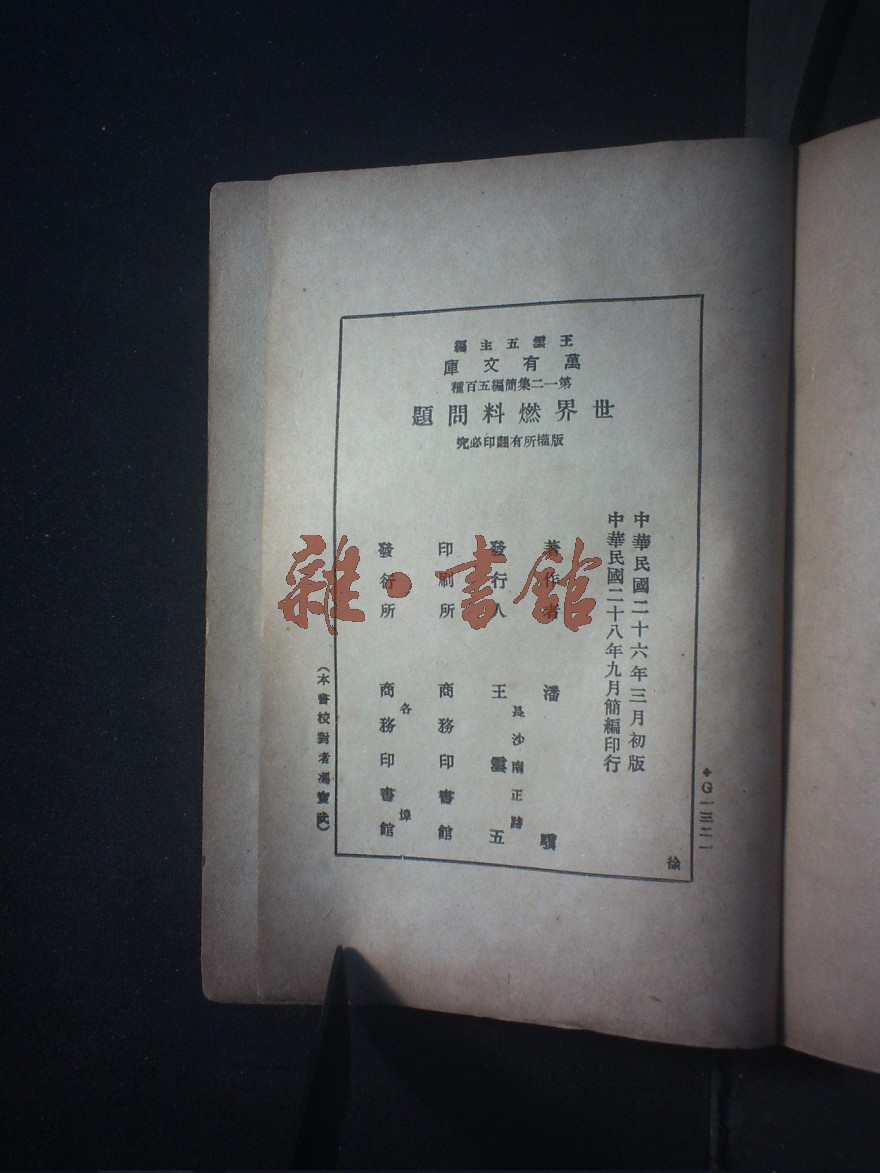 王雲五主編
萬有文庫
第一二集簡編五百種
世界燃料問題
版權所有翻印必究
中華民國二十六年三月初版
中華民國二十八年九月簡編印行
著作者 潘驥
發行人 王雲五
長沙南正路
印刷所 商務印書館
各埠
發行所 商務印書館
(本書校對者馮寶)
✦G一三二一
徐
雜·書館